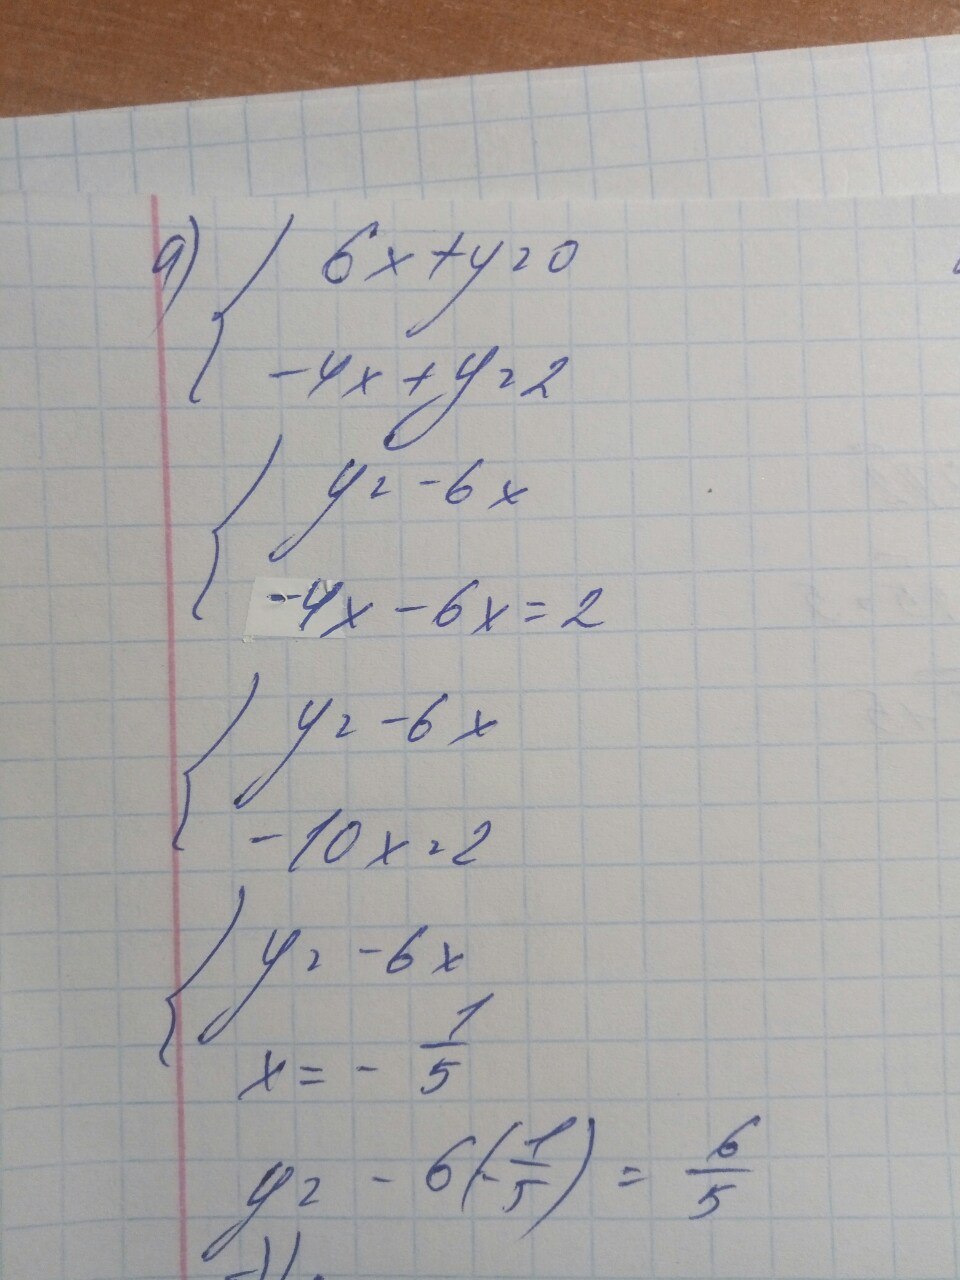 а) { 6x+y=0
-4x+y=2
{ y=-6x
-4x-6x=2
{ y=-6x
-10x=2
{ y=-6x
x=-1/5
y=-6(-1/5)=6/5